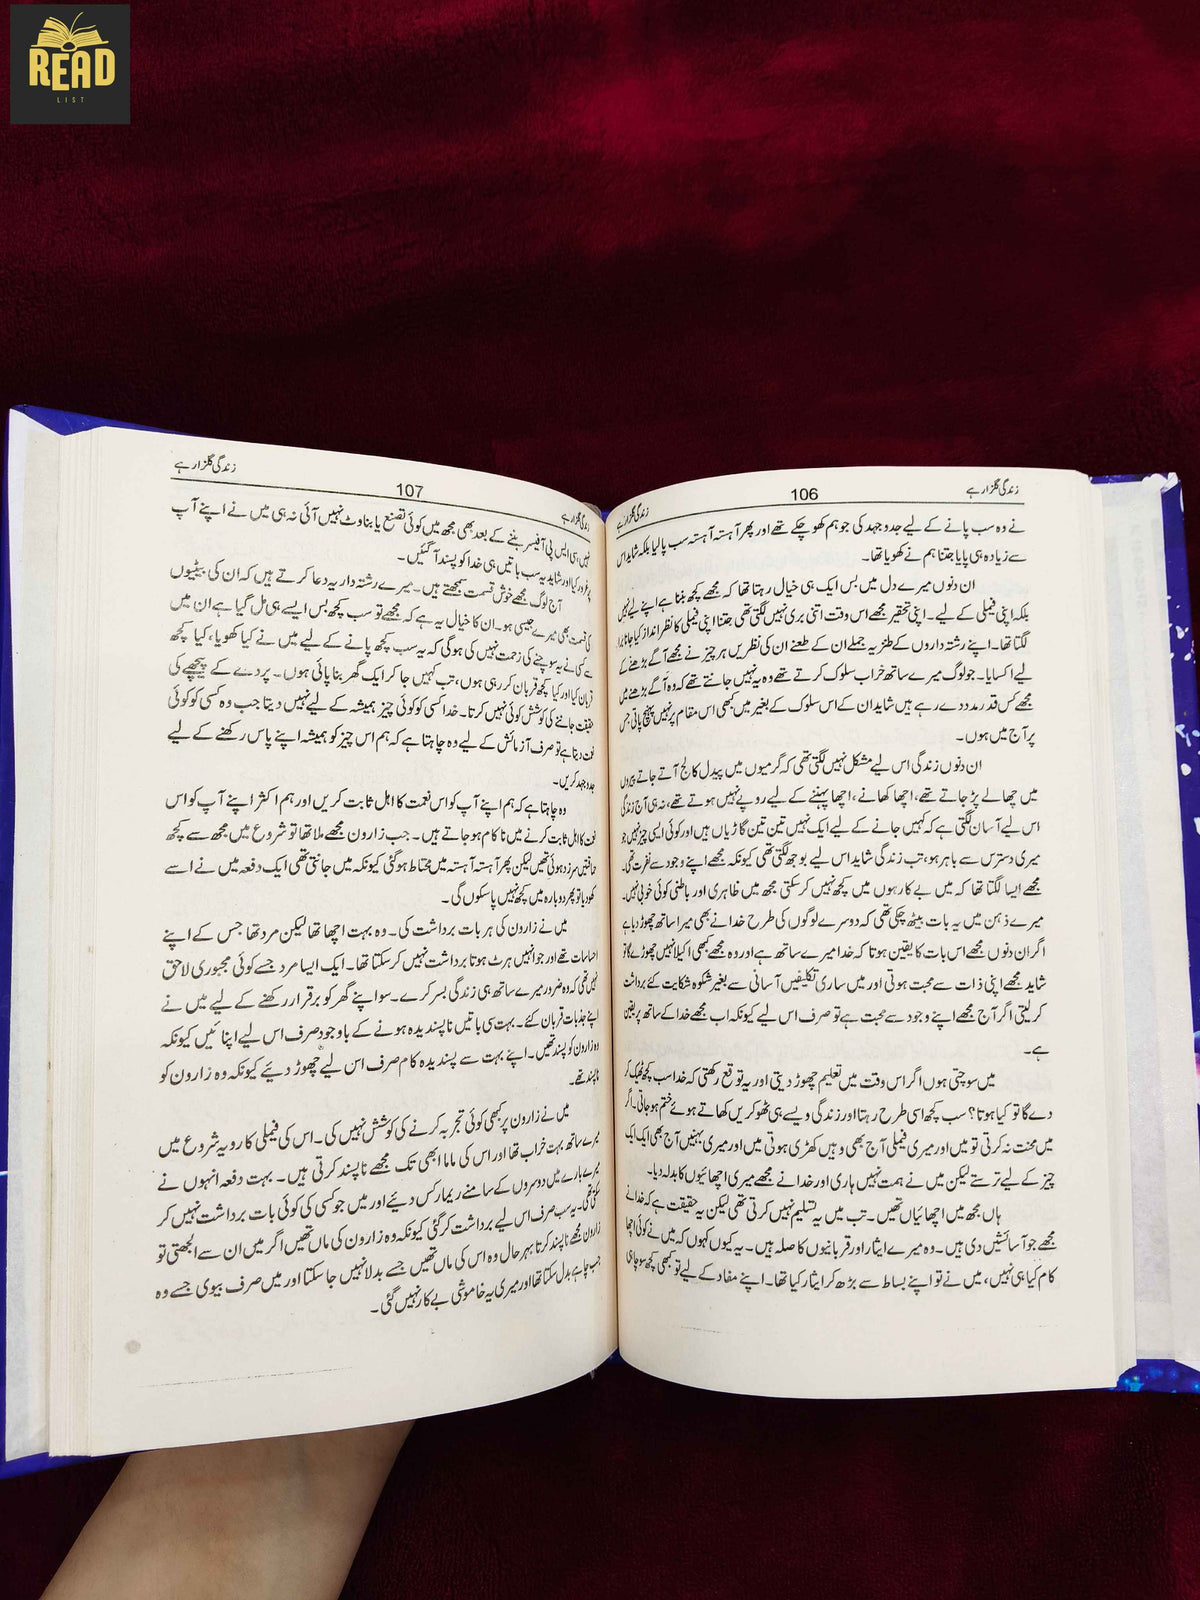 READ
LIST
زندگی گلزار ہے
106
زندگی گلزار ہے
نے وہ سب پانے کے لیے جدوجہد کی جو ہم کھو چکے تھے اور پھر آہستہ آہستہ سب پا لیا بلکہ شاید اس
سے زیادہ ہی پایا جتنا ہم نے کھویا تھا۔
ان دنوں میرے دل میں بس ایک ہی خیال رہتا تھا کہ مجھے کچھ بننا ہے اپنے لیے نہیں
بلکہ اپنی فیملی کے لیے۔ اپنی تحقیر مجھے اس وقت اتنی بری نہیں لگتی تھی جتنا اپنی فیملی کا نظر انداز کیا جانا برا
لگتا تھا۔ اپنے رشتہ داروں کے طنزیہ جملے ان کے طعنے ان کی نظریں ہر چیز نے مجھے آگے بڑھنے کے
لیے اکسایا۔ جو لوگ میرے ساتھ خراب سلوک کرتے تھے وہ یہ نہیں جانتے تھے کہ وہ آگے بڑھنے میں
مجھے کس قدر مدد دے رہے ہیں شاید ان کے اس سلوک کے بغیر میں کبھی اس مقام پر نہیں پہنچ پاتی جس
پر آج میں ہوں۔
ان دنوں زندگی اس لیے مشکل نہیں لگتی تھی کہ گرمیوں میں پیدل کالج آتے جاتے پیروں
میں چھالے پڑ جاتے تھے، اچھا کھانے، اچھا پہننے کے لیے روپے نہیں ہوتے تھے، نہ ہی آج زندگی
اس لیے آسان لگتی ہے کہ کہیں جانے کے لیے ایک نہیں تین تین گاڑیاں ہیں اور کوئی ایسی چیز نہیں جو
میری دسترس سے باہر ہو، تب زندگی شاید اس لیے بوجھ لگتی تھی کیونکہ مجھے اپنے وجود سے نفرت تھی۔
مجھے ایسا لگتا تھا کہ میں بے کار ہوں میں کچھ نہیں کر سکتی مجھ میں ظاہری اور باطنی کوئی خوبی نہیں۔
میرے ذہن میں یہ بات بیٹھ چکی تھی کہ دوسرے لوگوں کی طرح خدا نے بھی میرا ساتھ چھوڑ دیا ہے
اگر ان دنوں مجھے اس بات کا یقین ہوتا کہ خدا میرے ساتھ ہے اور وہ مجھے کبھی اکیلا نہیں چھوڑے گا تو
شاید مجھے اپنی ذات سے محبت ہوتی اور میں ساری تکلیفیں آسانی سے بغیر شکوہ شکایت کئے برداشت
کر لیتی اگر آج مجھے اپنے وجود سے محبت ہے تو صرف اس لیے کیونکہ اب مجھے خدا کے ساتھ پر یقین
ہے۔
میں سوچتی ہوں اگر اس وقت میں تعلیم چھوڑ دیتی اور یہ توقع رکھتی کہ خدا سب کچھ ٹھیک کر
دے گا تو کیا ہوتا؟ سب کچھ اسی طرح رہتا اور زندگی ویسے ہی ٹھوکریں کھاتے ہوئے ختم ہو جاتی۔ اگر
میں محنت نہ کرتی تو میں اور میری فیملی آج بھی وہیں کھڑی ہوتی میں اور میری بہنیں آج بھی ایک ایک
چیز کے لیے ترستے لیکن میں نے ہمت نہیں ہاری اور خدا نے مجھے میری اچھائیوں کا بدلہ دیا۔
ہاں مجھ میں اچھائیاں تھیں۔ تب میں یہ تسلیم نہیں کرتی تھی لیکن یہ حقیقت ہے کہ خدا نے
مجھے جو آسائشیں دی ہیں۔ وہ میرے ایثار اور قربانیوں کا صلہ ہیں۔ یہ کیوں کہوں کہ میں نے کوئی اچھا
کام کیا ہی نہیں، میں نے تو اپنے بساط سے بڑھ کر ایثار کیا تھا۔ اپنے مفاد کے لیے تو کبھی کچھ سوچا ہی
زندگی گلزار ہے
107
زندگی گلزار ہے
نہیں سی ایس پی آفیسر بننے کے بعد بھی مجھ میں کوئی تصنع یا بناوٹ نہیں آئی نہ ہی میں نے اپنے آپ
پر غرور کیا اور شاید یہ سب باتیں ہی خدا کو پسند آ گئیں۔
آج لوگ مجھے خوش قسمت سمجھتے ہیں۔ میرے رشتہ دار یہ دعا کرتے ہیں کہ ان کی بیٹیوں
کی قسمت بھی میرے جیسی ہو۔ ان کا خیال یہ ہے کہ مجھے تو سب کچھ بس ایسے ہی مل گیا ہے ان میں
سے کسی نے یہ سوچنے کی زحمت نہیں کی ہوگی کہ یہ سب کچھ پانے کے لیے میں نے کیا کھویا، کیا کچھ
قربان کیا اور کیا کچھ قربان کر رہی ہوں، تب کہیں جا کر ایک گھر بنا پائی ہوں۔ پردے کے پیچھے کی
حقیقت جاننے کی کوشش کوئی نہیں کرتا۔ خدا کسی کو کوئی چیز ہمیشہ کے لیے نہیں دیتا جب وہ کسی کو کوئی
نعمت دیتا ہے تو صرف آزمائش کے لیے وہ چاہتا ہے کہ ہم اس چیز کو ہمیشہ اپنے پاس رکھنے کے لیے
جدوجہد کریں۔
وہ چاہتا ہے کہ ہم اپنے آپ کو اس نعمت کا اہل ثابت کریں اور ہم اکثر اپنے آپ کو اس
نعمت کا اہل ثابت کرنے میں ناکام ہو جاتے ہیں۔ جب زارون مجھے ملا تھا تو شروع میں مجھ سے کچھ
حماقتیں سرزد ہوئی تھیں لیکن پھر آہستہ آہستہ میں محتاط ہو گئی کیونکہ میں جانتی تھی ایک دفعہ میں نے اسے
کھو دیا تو پھر دوبارہ میں کچھ نہیں پا سکوں گی۔
میں نے زارون کی ہر بات برداشت کی۔ وہ بہت اچھا تھا لیکن مرد تھا جس کے اپنے
احساسات تھے اور جو انہیں ہرٹ ہوتا برداشت نہیں کر سکتا تھا۔ ایک ایسا مرد جسے کوئی مجبوری لاحق
نہیں تھی کہ وہ ضرور میرے ساتھ ہی زندگی بسر کرے۔ سو اپنے گھر کو برقرار رکھنے کے لیے میں نے
اپنے جذبات قربان کئے۔ بہت سی باتیں ناپسندیدہ ہونے کے باوجود صرف اس لیے اپنائیں کیونکہ
وہ زارون کو پسند تھیں۔ اپنے بہت سے پسندیدہ کام صرف اس لیے چھوڑ دیئے کیونکہ وہ زارون کو
ناپسند تھے۔
میں نے زارون پر کبھی کوئی تجربہ کرنے کی کوشش نہیں کی۔ اس کی فیملی کا رویہ شروع میں
میرے ساتھ بہت خراب تھا اور اس کی ماما ابھی تک مجھے ناپسند کرتی ہیں۔ بہت دفعہ انہوں نے
میرے بارے میں دوسروں کے سامنے ریمارکس دیئے اور میں جو کسی کی کوئی بات برداشت نہیں کر
سکتی تھی۔ یہ سب صرف اس لیے برداشت کر گئی کیونکہ وہ زارون کی ماں تھیں اگر میں ان سے الجھتی تو
زارون مجھے ناپسند کرتا بہرحال وہ اس کی ماں تھیں جسے بدلا نہیں جا سکتا اور میں صرف بیوی جسے وہ
جب چاہے بدل سکتا تھا اور میری یہ خاموشی بے کار نہیں گئی۔